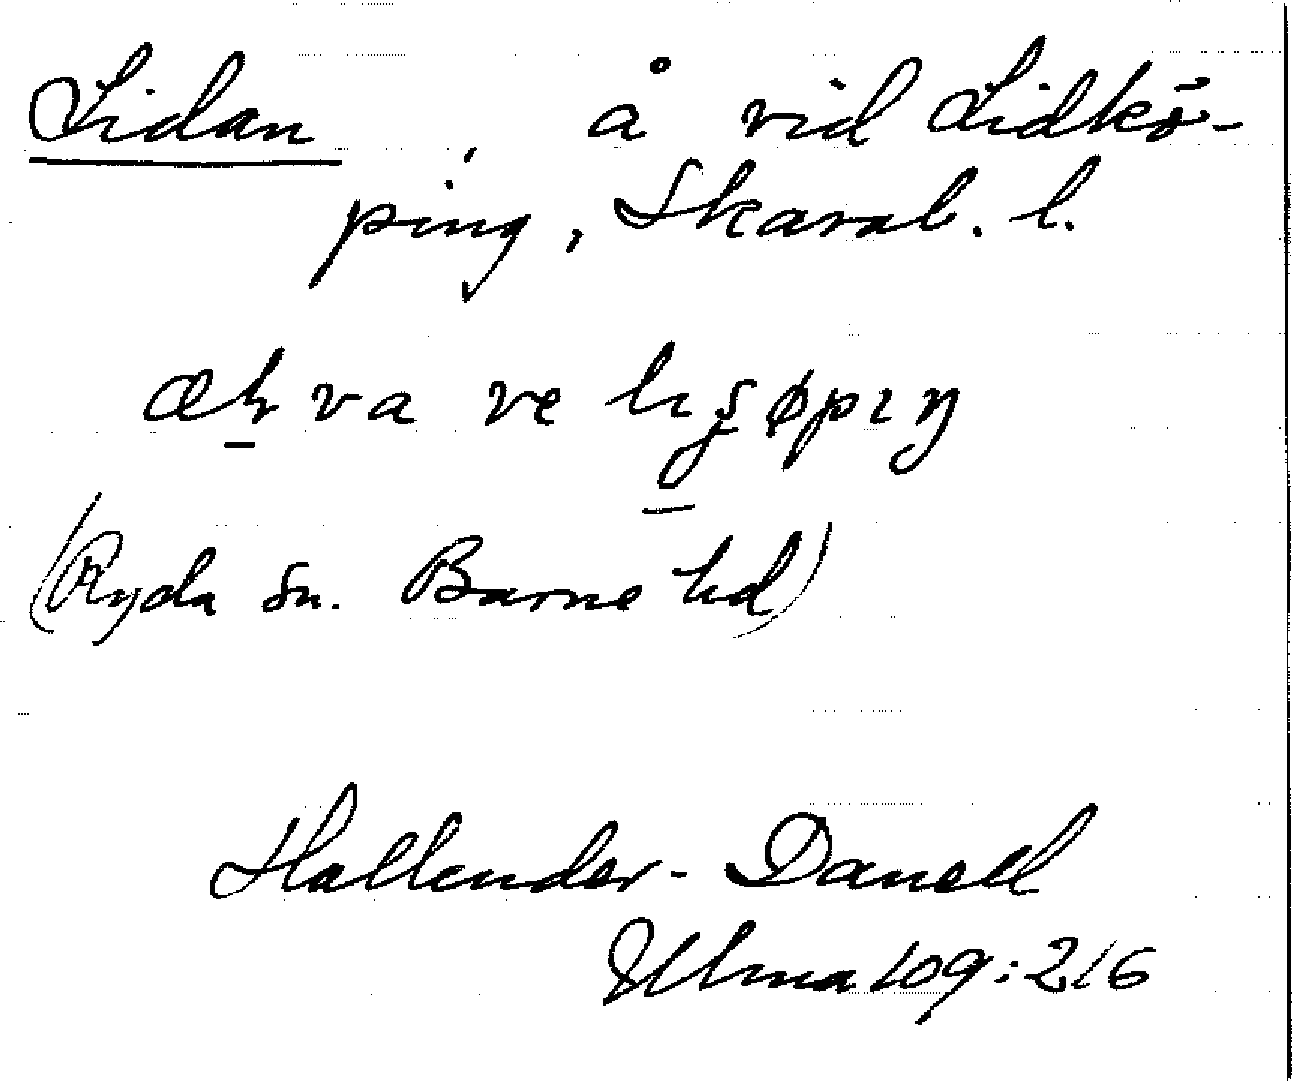 Lidan, å vid Lidkö-
ping, Skarab. l.
va ve
(Ryda sn. Barne hd)
Hallender-Danell
Ulma 109:216